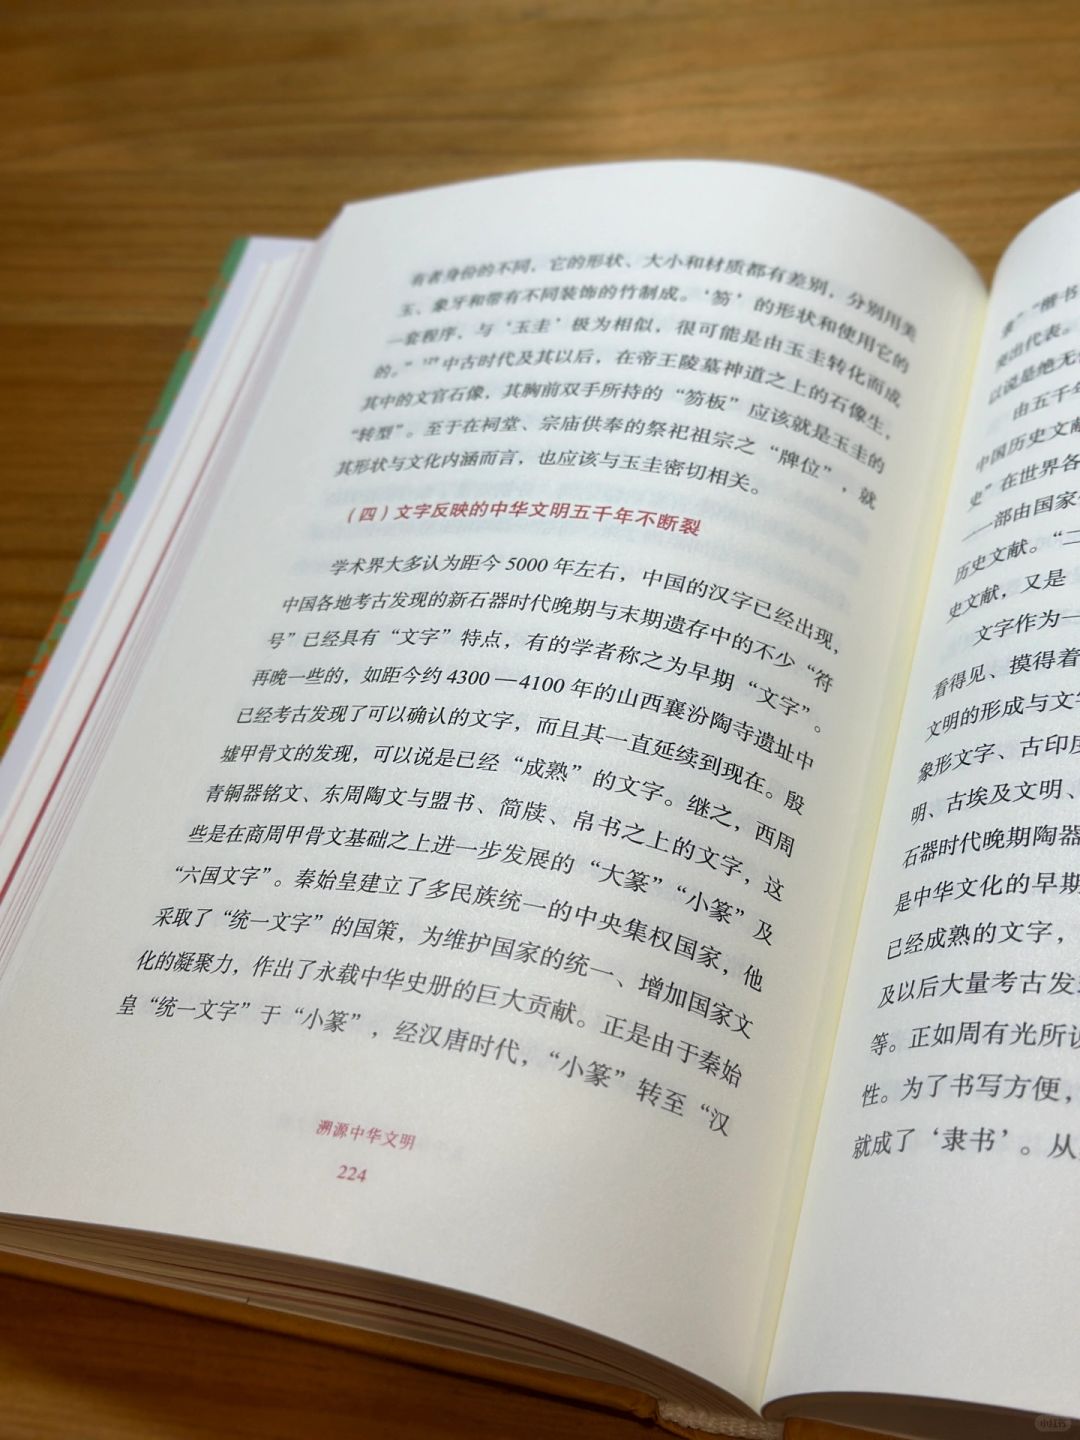 有者身份的不同，它的形状、大小和材质都有差别，分别用美
玉、象牙和带有不同装饰的竹制成。‘笏’的形状和使用它的
一套程序，与‘玉圭’极为相似，很可能是由玉圭转化而成
的。”中古时代及其以后，在帝王陵墓神道之上的石像生，
其中的文官石像，其胸前双手所持的“笏板”应该就是玉圭的
“转型”。至于在祠堂、宗庙供奉的祭祀祖宗之“牌位”，就
其形状与文化内涵而言，也应该与玉圭密切相关。
（四）文字反映的中华文明五千年不断裂
学术界大多认为距今5000年左右，中国的汉字已经出现，
中国各地考古发现的新石器时代晚期与末期遗存中的不少“符
号”已经具有“文字”特点，有的学者称之为早期“文字”。
再晚一些的，如距今约4300—4100年的山西襄汾陶寺遗址中
已经考古发现了可以确认的文字，而且其一直延续到现在。殷
墟甲骨文的发现，可以说是已经“成熟”的文字。继之，西周
青铜器铭文、东周陶文与盟书、简牍、帛书之上的文字，这
些是在商周甲骨文基础之上进一步发展的“大篆”“小篆”及
“六国文字”。秦始皇建立了多民族统一的中央集权国家，他
采取了“统一文字”的国策，为维护国家的统一、增加国家文
化的凝聚力，作出了永载中华史册的巨大贡献。正是由于秦始
皇“统一文字”于“小篆”，经汉唐时代，“小篆”转至“汉
溯源中华文明
224
隶”“楷书
突出代表。
以说是绝无
由五千年
中国历史文献
史”在世界各
一部由国家
历史文献。“二
史文献，又是
文字作为一
看得见、摸得着
文明的形成与文
象形文字、古印度
明、古埃及文明、
石器时代晚期陶器
是中华文化的早期
已经成熟的文字，
及以后大量考古发
等。正如周有光所说
性。为了书写方便，
就成了‘隶书’。从
小红书